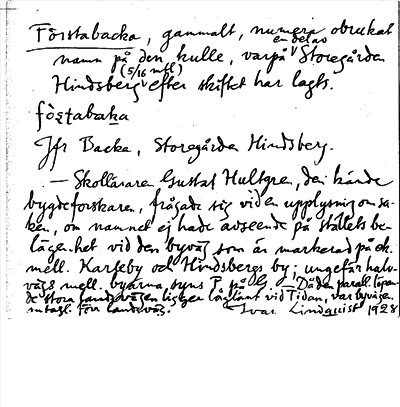 Förstabacka, gammalt, numera obrukat
en del av
namn på den kulle, varpå Storegården
(5/16 mtl)
Hindsberg efter skiftet har lagts.
fö̀stabaka
Jfr Backa, Storegården Hindsberg.
— Skolläraren Gustaf Hultgren, den kände
bygdeforskaren, frågade sig vid en upplysning om sa-
ken, om namnet ej hade avseende på ställets be-
lägenhet vid den byväg som är markerad på ek.
mell. Karleby och Hindsbergs by; ungefär halv-
vägs mell. byarna syns P på G. — Då den parall. löpan-
de stora landsvägen ligger låglänt vid Tidan, var byvägen
antagl. förr landsväg. Ivar Lindquist 1928